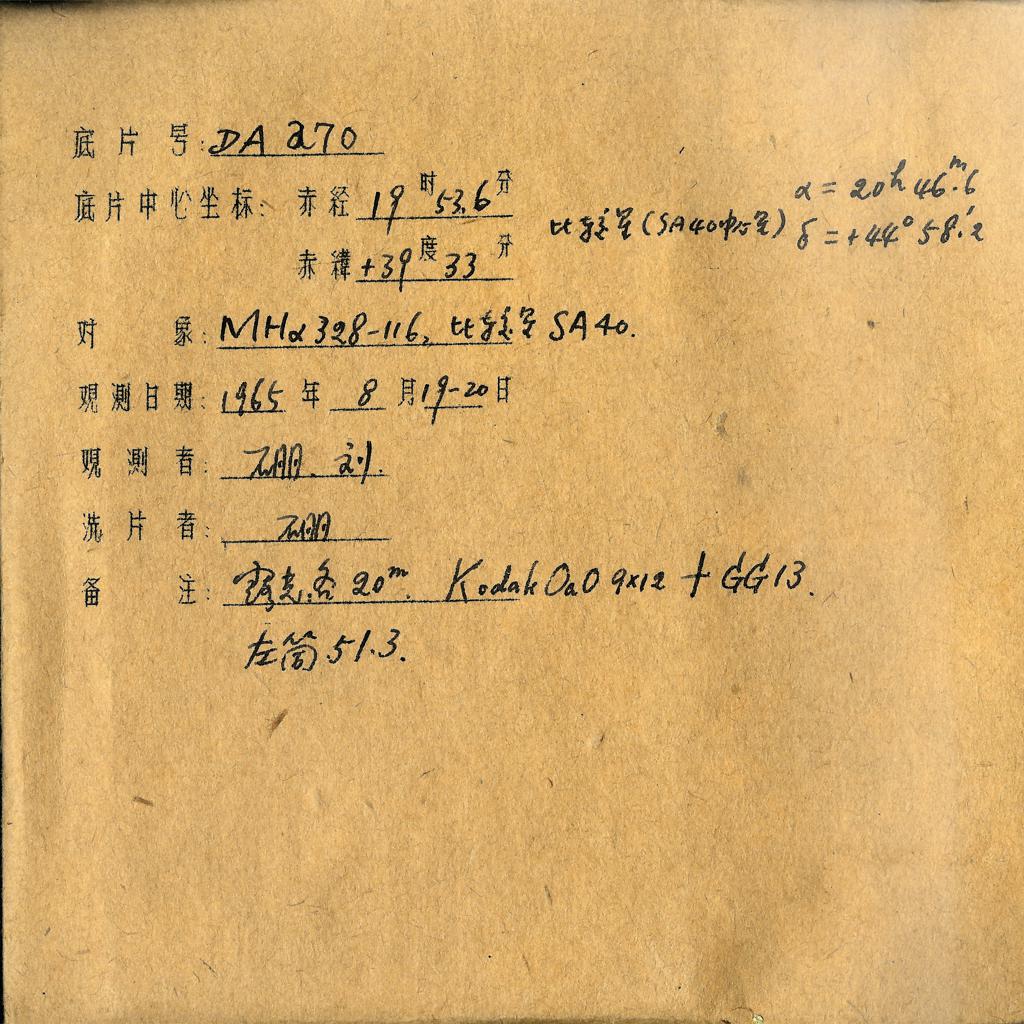 底片号: DA 270
底片中心坐标: 赤经 19时 53.6分
比较星(SA40中心星) α = 20h 46m.6
δ = +44° 58'.2
赤緯 +39度 33分
对象: MHα328-116, 比较星 SA40.
观测日期: 1965年 8月19-20日
观测者: 石明、刘.
洗片者: 石明
备注: 露光各20m. Kodak OaO 9x12 + GG13.
左筒 51.3.